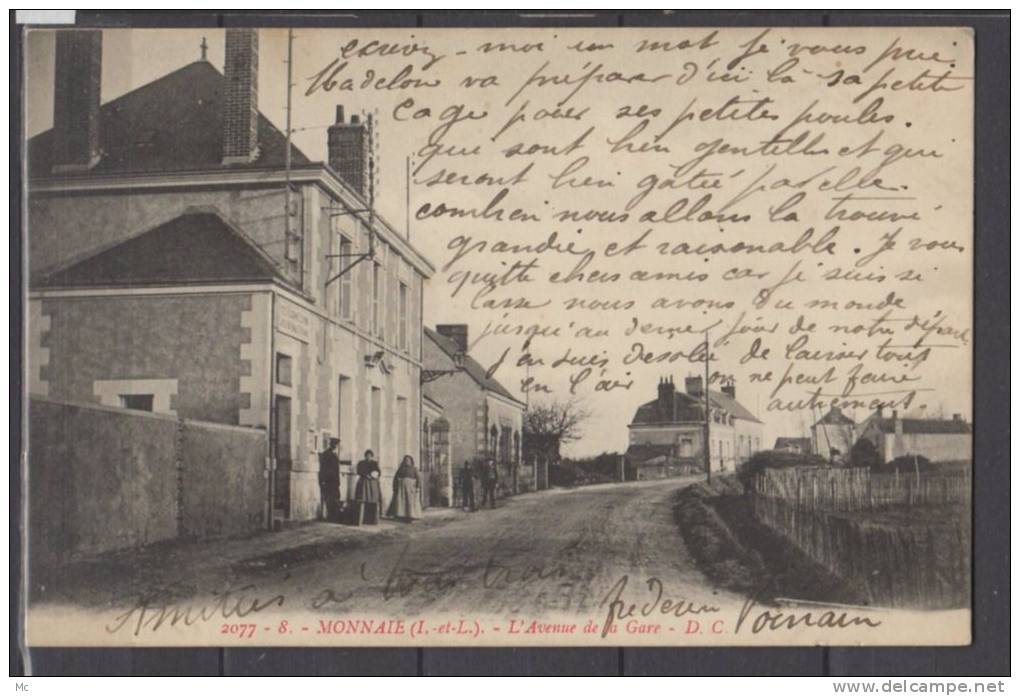 excrivez - moi un mot je vous prie
Madelon va préparer d'ici là sa petite
cage pour ses petites poules.
qui sont bien gentilles et qui
seront bien gatée par elle.
combien nous allons la trouvé
grandie et raisonable. Je vous
quitte chers amis car je suis si
lasse nous avons du monde
jusqu'au dernier jour de notre départ
j'en suis désolée de laisser tout
en l'air on ne peut faire
autrement
Amitiés à vous trois
2077 - 8. - MONNAIE (I.-et-L.). - L'Avenue de la Gare - D. C.
Mc
www.delcampe.net